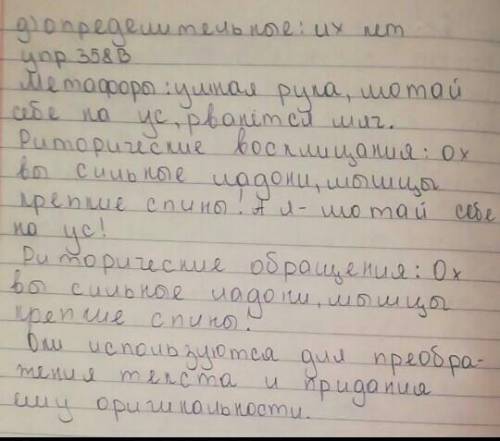 д) определительные: их нет
упр 358В
Метафоры: умная рука, мотай
себе на ус, рванётся миг.
Риторические восклицания: Ох
вы сильные ладони, мышцы
крепкие спины! А я - мотай себе
на ус!
Риторические обращения: Ох
вы сильные ладони, мышцы
крепкие спины!
Они используются для преобра-
жения текста и придания
ему оригинальности.